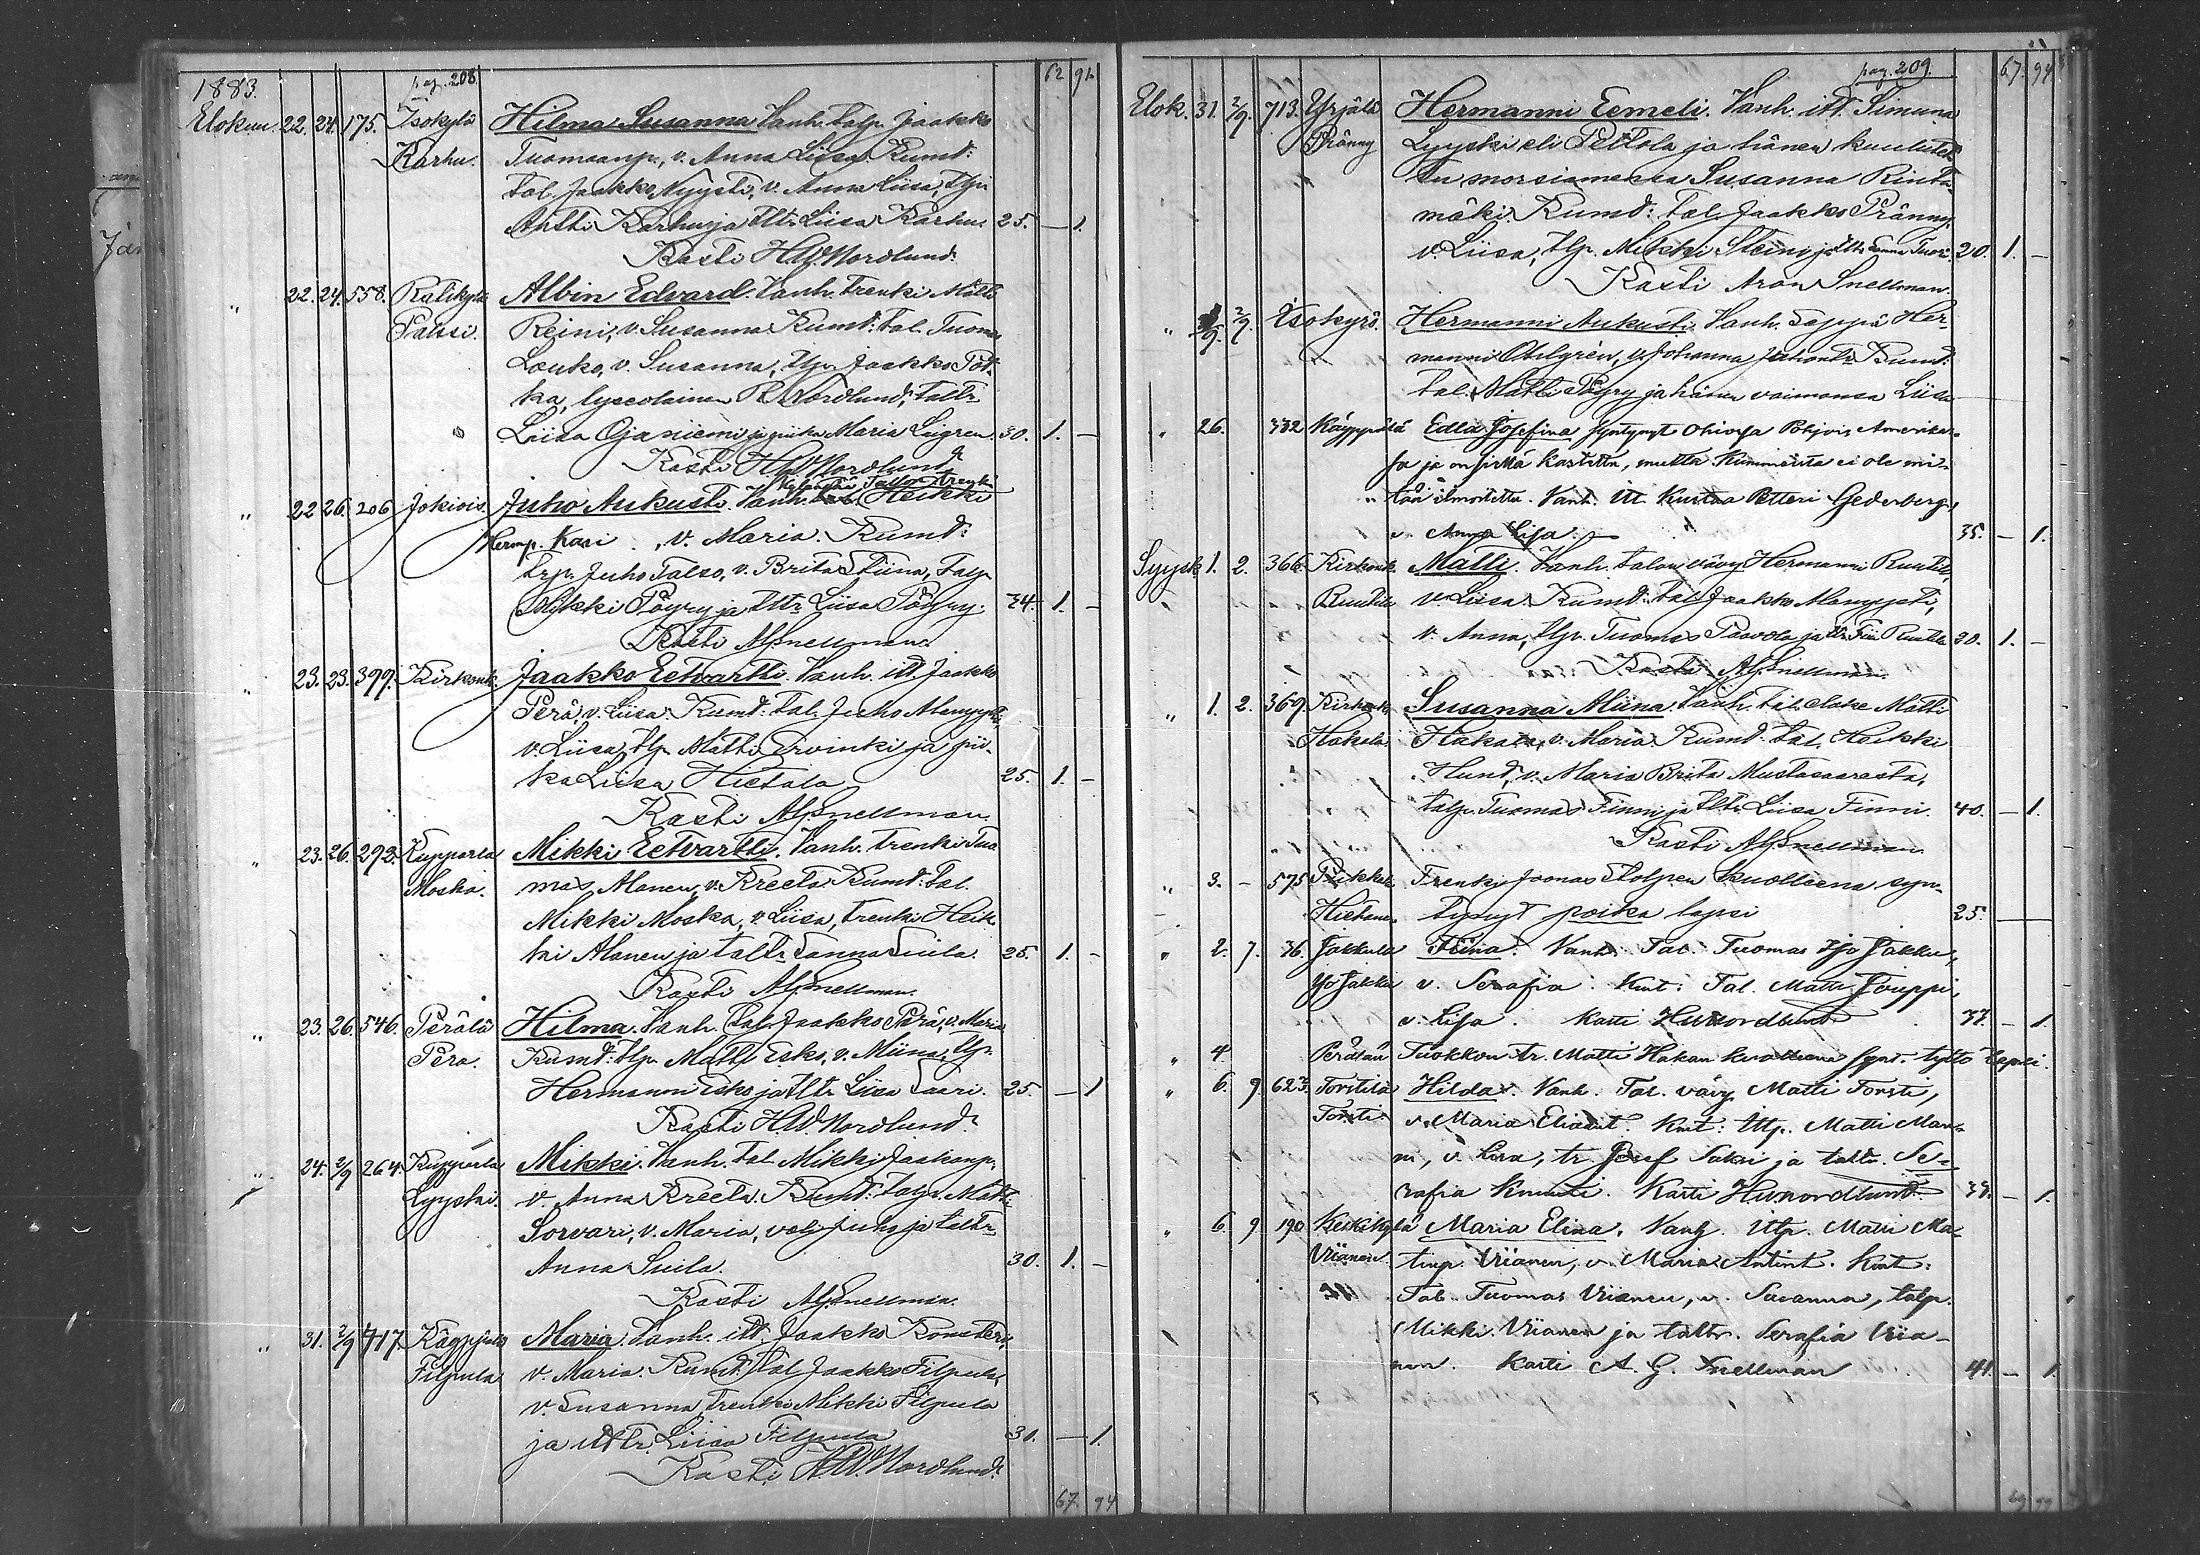 pag. 208
62 91
1883.
Elokuu. 22. 24. 175. Isokylä Hilma Susanna. Vanh. talp. Jaakko
Karhu. Tuomaanp., v. Anna Liisa. Kumd:
tal. Jaakko Nyysti, v. Anna Liisa, tlp.
Antti Karhu ja tltr Liisa Karhu. 25. — 1.
Kasti H.W. Nordlund.
" 22. 24. 558. Palikylä Albin Edvard. Vanh. trenki Matti
Passi. Reini, v. Susanna. Kumd: tal. Tuomas
Louko, v. Susanna, tlp. Jaakko Töt-
ka, lyceolainen R. Nordlund, taltr
Liisa Ojaniemi ja piika Maria Luigren. 30. 1. —
Kasti H.W. Nordlund
Kylänpää Talon trenki
" 22 26. 206 Jokiois. Juho Aukusti. Vanh. Heikki
Hermp. Kari, v. Maria. Kumd:
trp. Juho Talso, v. Brita Stiina, talp.
Mikki Pöyry ja tltr Liisa Pöyry. 34. 1. —
Kasti A.G. Snellman.
" 23. 23. 399. Kirkonk. Jaakko Eetvartti. Vanh. itt. Jaakko
Perä, v. Liisa. Kumd: tal. Juho
v. Liisa, tlp. Matti Ervinki ja pii-
ka Liisa Hietala 25. 1. —
Kasti A.G. Snellman.
" 23. 26. 292. Kupparla Mikki Eetvartti. Vanh. trenki Tuo
Moska. mas Alanen, v. Kreeta. Kumd: tal.
Mikki Moska, v. Liisa, trenki Heik
ki Alanen ja taltr Sanna Suila. 25. 1. —
Kasti A.G. Snellman.
" 23. 26. 546. Perälä Hilma. Vanh. tal. Jaakko Perä, v. Maria
Perä. Kumd: tlp. Matti Esko, v. Miina, tlp.
Hermanni Esko ja tltr Liisa Saari. 25. — 1
Kasti H.W. Nordlund.
" 24. 2/9 264. Kupparla Mikki. Vanh. tal. Mikki Jaakonp.
Lyyski. v. Anna Kreeta. Kumd: talp. Matti
Sorvari, v. Maria, velj. Juho ja taltr
Anna Suila. 30. 1. —
Kasti A.G. Snellman.
" 31. 2/9 717. Käyppälä Maria. Vanh. itt. Jaakko
Filpula v. Maria. Kumd: tal. Jaakko Filpula,
v. Susanna, trenki Mikki Filpula
ja tltr. Liisa Filpula 31. — 1.
Kasti H.W. Nordlund.
67. 94
pag. 209.
67. 94
Elok. 31. 2/9. 713. Yrjälä Hermanni Eemeli. Vanh. itt. Simuna
Pränny Lyyski eli Peltola ja hänen kuulutet-
tu morsiamensa Susanna Rinta-
mäki. Kumd: tal. Jaakko Pränny,
v. Liisa, tlp. Mikki Steini ja tltr Sanna 20. 1. —
Kasti Aron Snellman.
" 2/9. Isokyrö. Hermanni Aukusti. Vanh. seppä Her-
manni Ohlgrén, v. Johanna Kumd:
tal. Matti Pöyry ja hänen vaimonsa Liisa
" 26. 332 Käyppälä Edla Josefina syntynyt Ohiossa Pohjois Amerikas-
sa ja on siellä kastettu, mutta Kummeista ei ole mi-
tään ilmoitettu. Vanh. itt. Kustaa Petteri Gederberg,
v. Anna Lisa. 35. — 1.
Syysk 1. 2. 366. Kirkonk. Matti. Vanh. talon vävy Hermanni Ruutila,
Ruutila v. Liisa. Kumd: tal. Jaakko
v. Anna, tlp. Tuomas Paavola ja tltr Fiia Ruutila 20. 1. —
Kasti A.G. Snellman.
" 1. 2. 369 Kirkonk. Susanna Miina. Vanh. til. elake Matti
Hakala Hakala, v. Maria. Kumd. tal. Heikki
Hund, v. Maria Brita Mustasaaresta,
talp. Tuomas Finni ja tltr Liisa Finni. 40. — 1.
Kasti A.G. Snellman.
" 3. — 575 Trenki Joonas Stolpen kuolleena syn-
Hietanen tynyt poika lapsi 25. —
" 2. 7. 36. Jakkula Fiina. Vanh. Tal. Tuomas Yso Jakku,
Yso Jakku v. Serafia. Kmt: Tal. Matti Jouppi,
v. Lisa. Kasti H.W. Nordlund 37. — 1.
" 4 Perälän Tuokkon tr. Matti Hakan kuolleena synt. tyttö lapsi.
" 6. 9. 623. Torstila Hilda. Vanh. Tal. vävy Matti Torsti,
Torsti v. Maria Eliaat. Kmt: tlp. Matti Man-
ni, v. Lisa, tr. Josef Saksi ja taltr. Se-
rafia Knuuti. Kasti H.W. Nordlund. 38. — 1.
" 6. 9. 190. Keskikylä Maria Elina. Vanh. Itlp. Matti Ma-
Viianen tinp. Viianen, v. Maria Antint. Kmt:
Tal. Tuomas Viianen, v. Susanna, talp.
Mikki Viianen ja taltr. Serafia Viia-
nen. Kasti A. G. Snellman 41. — 1.